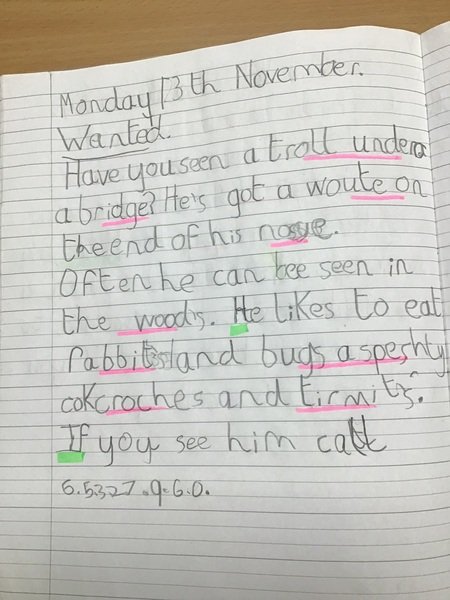 Monday 13th November.
Wanted.
Have you seen a troll under a
a bridge? He's got a woute on
the end of his nose.
Often he can bee seen in
the woods. He likes to eat
rabbits and bugs aspeshly
cokcroches and tirmits.
If you see him call
6.5327.9.6.0.